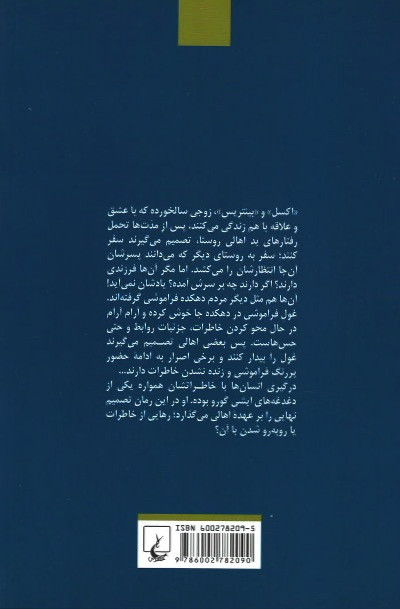 «اکسل» و «بیتریس»، زوجی سالخورده که با عشق
و علاقه با هم زندگی می‌کنند، پس از مدت‌ها تحمل
رفتارهای بد اهالی روستا، تصمیم می‌گیرند سفر
کنند؛ سفر به روستای دیگر که می‌دانند پسرشان
آن‌جا انتظارشان را می‌کشد. اما مگر آن‌ها فرزندی
دارند؟ اگر دارند چه بر سرش آمده؟ یادشان نمی‌آید!
آن‌ها هم مثل دیگر مردم دهکده فراموشی گرفته‌اند.
غول فراموشی در دهکده جا خوش کرده و آرام آرام
در حال محو کردن خاطرات، جزئیات روابط و حتی
حس‌هاست. پس بعضی اهالی تصمیم می‌گیرند
غول را بیدار کنند و برخی اصرار به ادامهٔ حضور
پررنگ فراموشی و زنده نشدن خاطرات دارند...
درگیری انسان‌ها با خاطراتشان همواره یکی از
دغدغه‌های ایشی گورو بوده. او در این رمان تصمیم
نهایی را بر عهده اهالی می‌گذارد؛ رهایی از خاطرات
یا روبه‌رو شدن با آن؟
ISBN 600278209-5
9 786002 782090